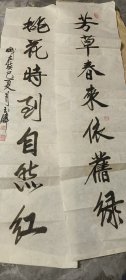 芳草春来依旧绿
桃花時到自然红